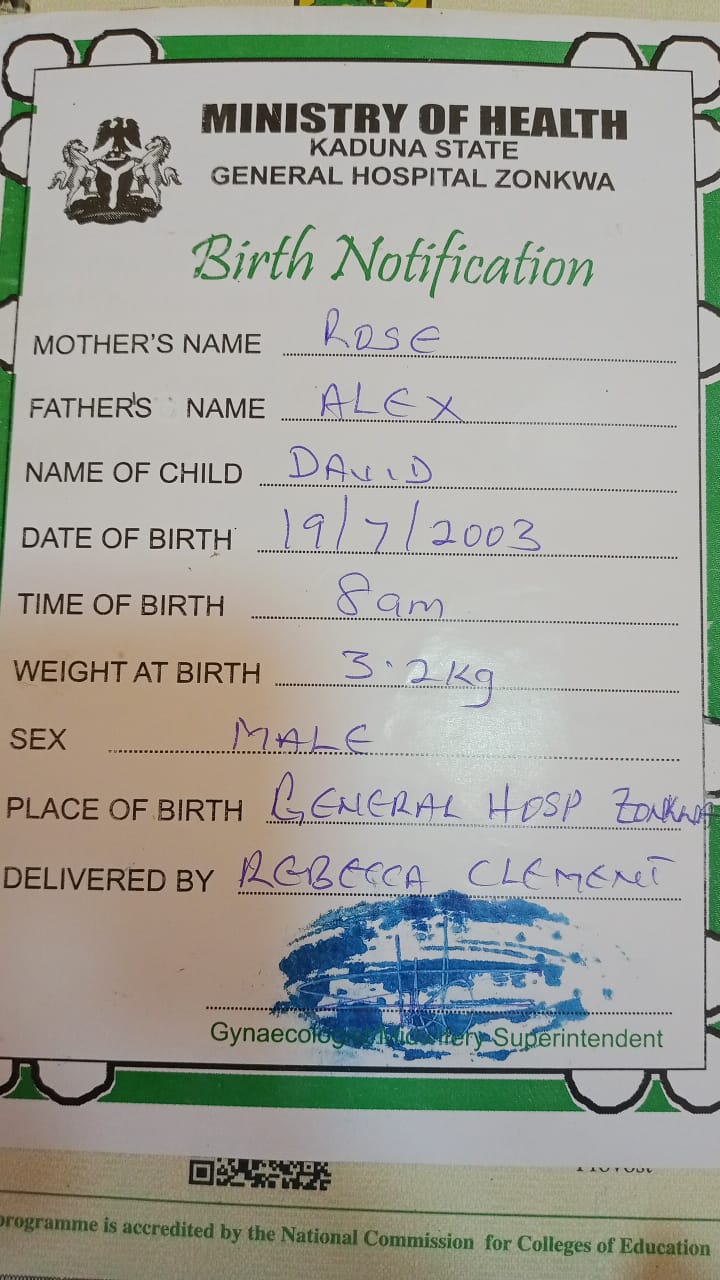 MINISTRY OF HEALTH
KADUNA STATE
GENERAL HOSPITAL ZONKWA
Birth Notification
MOTHER'S NAME ROSE
FATHER'S NAME ALEX
NAME OF CHILD DAVID
DATE OF BIRTH 19/7/2003
TIME OF BIRTH 8am
WEIGHT AT BIRTH 3.2kg
SEX MALE
PLACE OF BIRTH GENERAL HOSP ZONKWA
DELIVERED BY REBECCA CLEMENT
Superintendent
programme is accredited by the National Commission for Colleges of Education